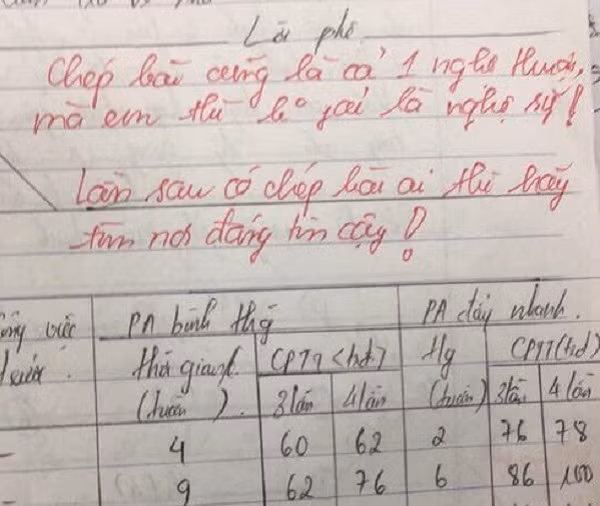 Lời phê
Chép bài cũng là cả 1 nghệ thuật,
mà em thì lại là nghệ sỹ!
Lần sau có chép bài ai thì hãy
tìm nơi đáng tin cậy!
PA bình thg PA đẩy nhanh.
thời gian CPTT (hđ) Tg CPTT (hđ)
(tuần) 3 lần 4 lần (tuần) 3 lần 4 lần
4 60 62 2 76 78
9 62 76 6 86 100